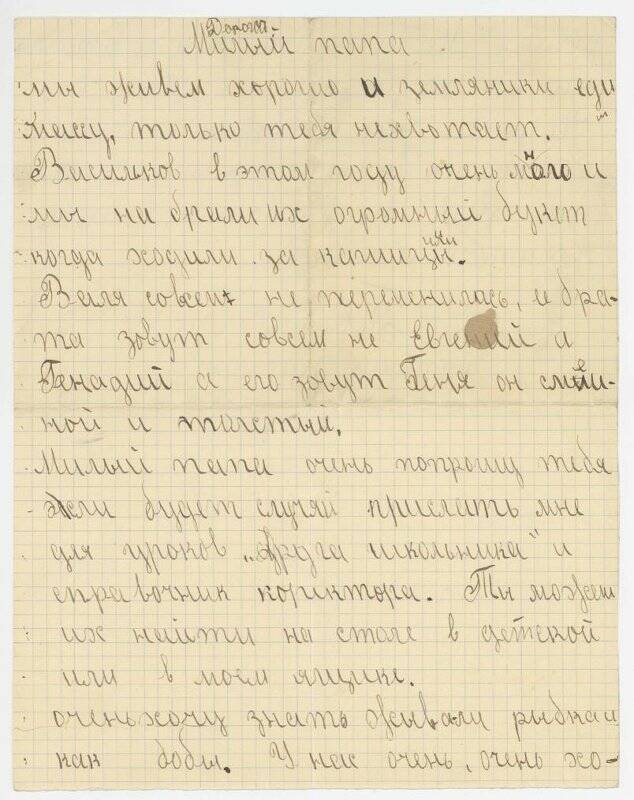 Дорогой
Милый папа
мы живем хорошо и земляники едим
массу, только тебя нехвотает.
Васильков в этом году очень много и
мы на брали их огромный букет
когда ходили за
Валя совсем не переменилась, ее бра-
та зовут совсем не Евгений а
Генадий а его зовут Геня он смеш-
ной и толстый.
Милый папа очень попрошу тебя
если будет случяй прислать мне
для уроков „Друга школьника" и
справочник коректора. Ты можеш
их найти на столе в детской
или в моем ящике.
очень хочу знать жива ли рыбка и
как бобы. У нас очень, очень хо-